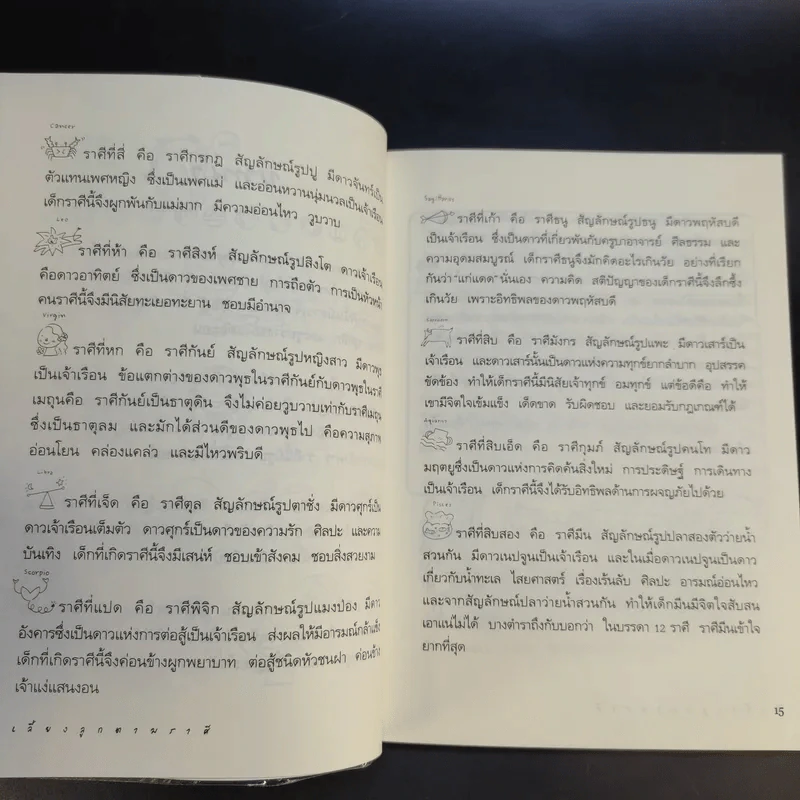 Cancer
ราศีที่สี่ คือ ราศีกรกฏ สัญลักษณ์รูปปู มีดาวจันทร์เป็น
ตัวแทนเพศหญิง ซึ่งเป็นเพศแม่ และอ่อนหวานนุ่มนวลเป็นเจ้าเรือน
เด็กราศีนี้จึงผูกพันกับแม่มาก มีความอ่อนไหว วูบวาบ
Leo
ราศีที่ห้า คือ ราศีสิงห์ สัญลักษณ์รูปสิงโต ดาวเจ้าเรือน
คือดาวอาทิตย์ ซึ่งเป็นดาวของเพศชาย การถือตัว การเป็นหัวหน้า
คนราศีนี้จึงมีนิสัยทะเยอทะยาน ชอบมีอำนาจ
Virgin
ราศีที่หก คือ ราศีกันย์ สัญลักษณ์รูปหญิงสาว มีดาวพุธ
เป็นเจ้าเรือน ข้อแตกต่างของดาวพุธในราศีกันย์กับดาวพุธในราศี
เมถุนคือ ราศีกันย์เป็นธาตุดิน จึงไม่ค่อยวูบวาบเท่ากับราศีเมถุน
ซึ่งเป็นธาตุลม และมักได้ส่วนดีของดาวพุธไป คือความสุภาพ
อ่อนโยน คล่องแคล่ว และมีไหวพริบดี
Libra
ราศีที่เจ็ด คือ ราศีตุล สัญลักษณ์รูปตาชั่ง มีดาวศุกร์เป็น
ดาวเจ้าเรือนเต็มตัว ดาวศุกร์เป็นดาวของความรัก ศิลปะ และความ
บันเทิง เด็กที่เกิดราศีนี้จึงมีเสน่ห์ ชอบเข้าสังคม ชอบสิ่งสวยงาม
Scorpio
ราศีที่แปด คือ ราศีพิจิก สัญลักษณ์รูปแมงป่อง มีดาว
อังคารซึ่งเป็นดาวแห่งการต่อสู้เป็นเจ้าเรือน ส่งผลให้มีอารมณ์กล้าแข็ง
เด็กที่เกิดราศีนี้จึงค่อนข้างผูกพยาบาท ต่อสู้ชนิดหัวชนฝา ค่อนข้าง
เจ้าแง่แสนงอน
เลี้ยงลูกตามราศี
Sagittarius
ราศีที่เก้า คือ ราศีธนู สัญลักษณ์รูปธนู มีดาวพฤหัสบดี
เป็นเจ้าเรือน ซึ่งเป็นดาวที่เกี่ยวพันกับครูบาอาจารย์ ศีลธรรม และ
ความอุดมสมบูรณ์ เด็กราศีธนูจึงมักคิดอะไรเกินวัย อย่างที่เรียก
กันว่า "แก่แดด" นั่นเอง ความคิด สติปัญญาของเด็กราศีนี้จึงลึกซึ้ง
เกินวัย เพราะอิทธิพลของดาวพฤหัสบดี
ราศีที่สิบ คือ ราศีมังกร สัญลักษณ์รูปแพะ มีดาวเสาร์เป็น
เจ้าเรือน และดาวเสาร์นั้นเป็นดาวแห่งความทุกข์ยากลำบาก อุปสรรค
ขัดข้อง ทำให้เด็กราศีนี้มีนิสัยเจ้าทุกข์ อมทุกข์ แต่ข้อดีคือ ทำให้
เขามีจิตใจเข้มแข็ง เด็ดขาด รับผิดชอบ และยอมรับกฎเกณฑ์ได้
Aquarius
ราศีที่สิบเอ็ด คือ ราศีกุมภ์ สัญลักษณ์รูปคนโท มีดาว
มฤตยูซึ่งเป็นดาวแห่งการคิดค้นสิ่งใหม่ การประดิษฐ์ การเดินทาง
เป็นเจ้าเรือน เด็กราศีนี้จึงได้รับอิทธิพลด้านการผจญภัยไปด้วย
Pisces
ราศีที่สิบสอง คือ ราศีมีน สัญลักษณ์รูปปลาสองตัวว่ายน้ำ
สวนกัน มีดาวเนปจูนเป็นเจ้าเรือน และในเมื่อดาวเนปจูนเป็นดาว
เกี่ยวกับน้ำทะเล ไสยศาสตร์ เรื่องเร้นลับ ศิลปะ อารมณ์อ่อนไหว
และจากสัญลักษณ์ปลาว่ายน้ำสวนกัน ทำให้เด็กมีนมีจิตใจสับสน
เอาแน่ไม่ได้ บางตำราถึงกับบอกว่า ในบรรดา 12 ราศี ราศีมีนเข้าใจ
ยากที่สุด
15